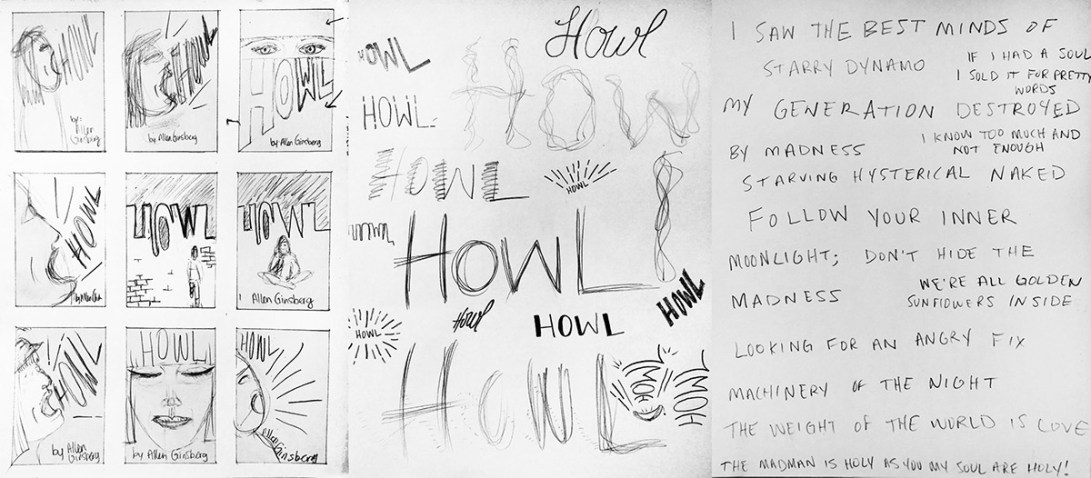 HOWL
by:
Allen
Ginsberg
HOWL
by Allen Ginsberg
HOWL
by Allen Ginsberg
HOWL
by Allen
HOWL
HOWL
Allen Ginsberg
HOWL
by Allen
Ginsberg
HOWL
by Allen Ginsberg
HOWL
Allen Ginsberg
Howl
HOWL
HOWL
HOWL
HOWL
HOWL
HOWL
HOWL
HOWL
Howl
HOWL
HOWL
HOWL
HOWL
HOW
HOW
I SAW THE BEST MINDS OF
STARRY DYNAMO
IF I HAD A SOUL
I SOLD IT FOR PRETTY
WORDS
MY GENERATION DESTROYED
I KNOW TOO MUCH AND
NOT ENOUGH
BY MADNESS
STARVING HYSTERICAL NAKED
FOLLOW YOUR INNER
MOONLIGHT; DON'T HIDE THE
MADNESS
WE'RE ALL GOLDEN
SUNFLOWERS INSIDE
LOOKING FOR AN ANGRY FIX
MACHINERY OF THE NIGHT
THE WEIGHT OF THE WORLD IS LOVE
THE MADMAN IS HOLY AS YOU MY SOUL ARE HOLY!